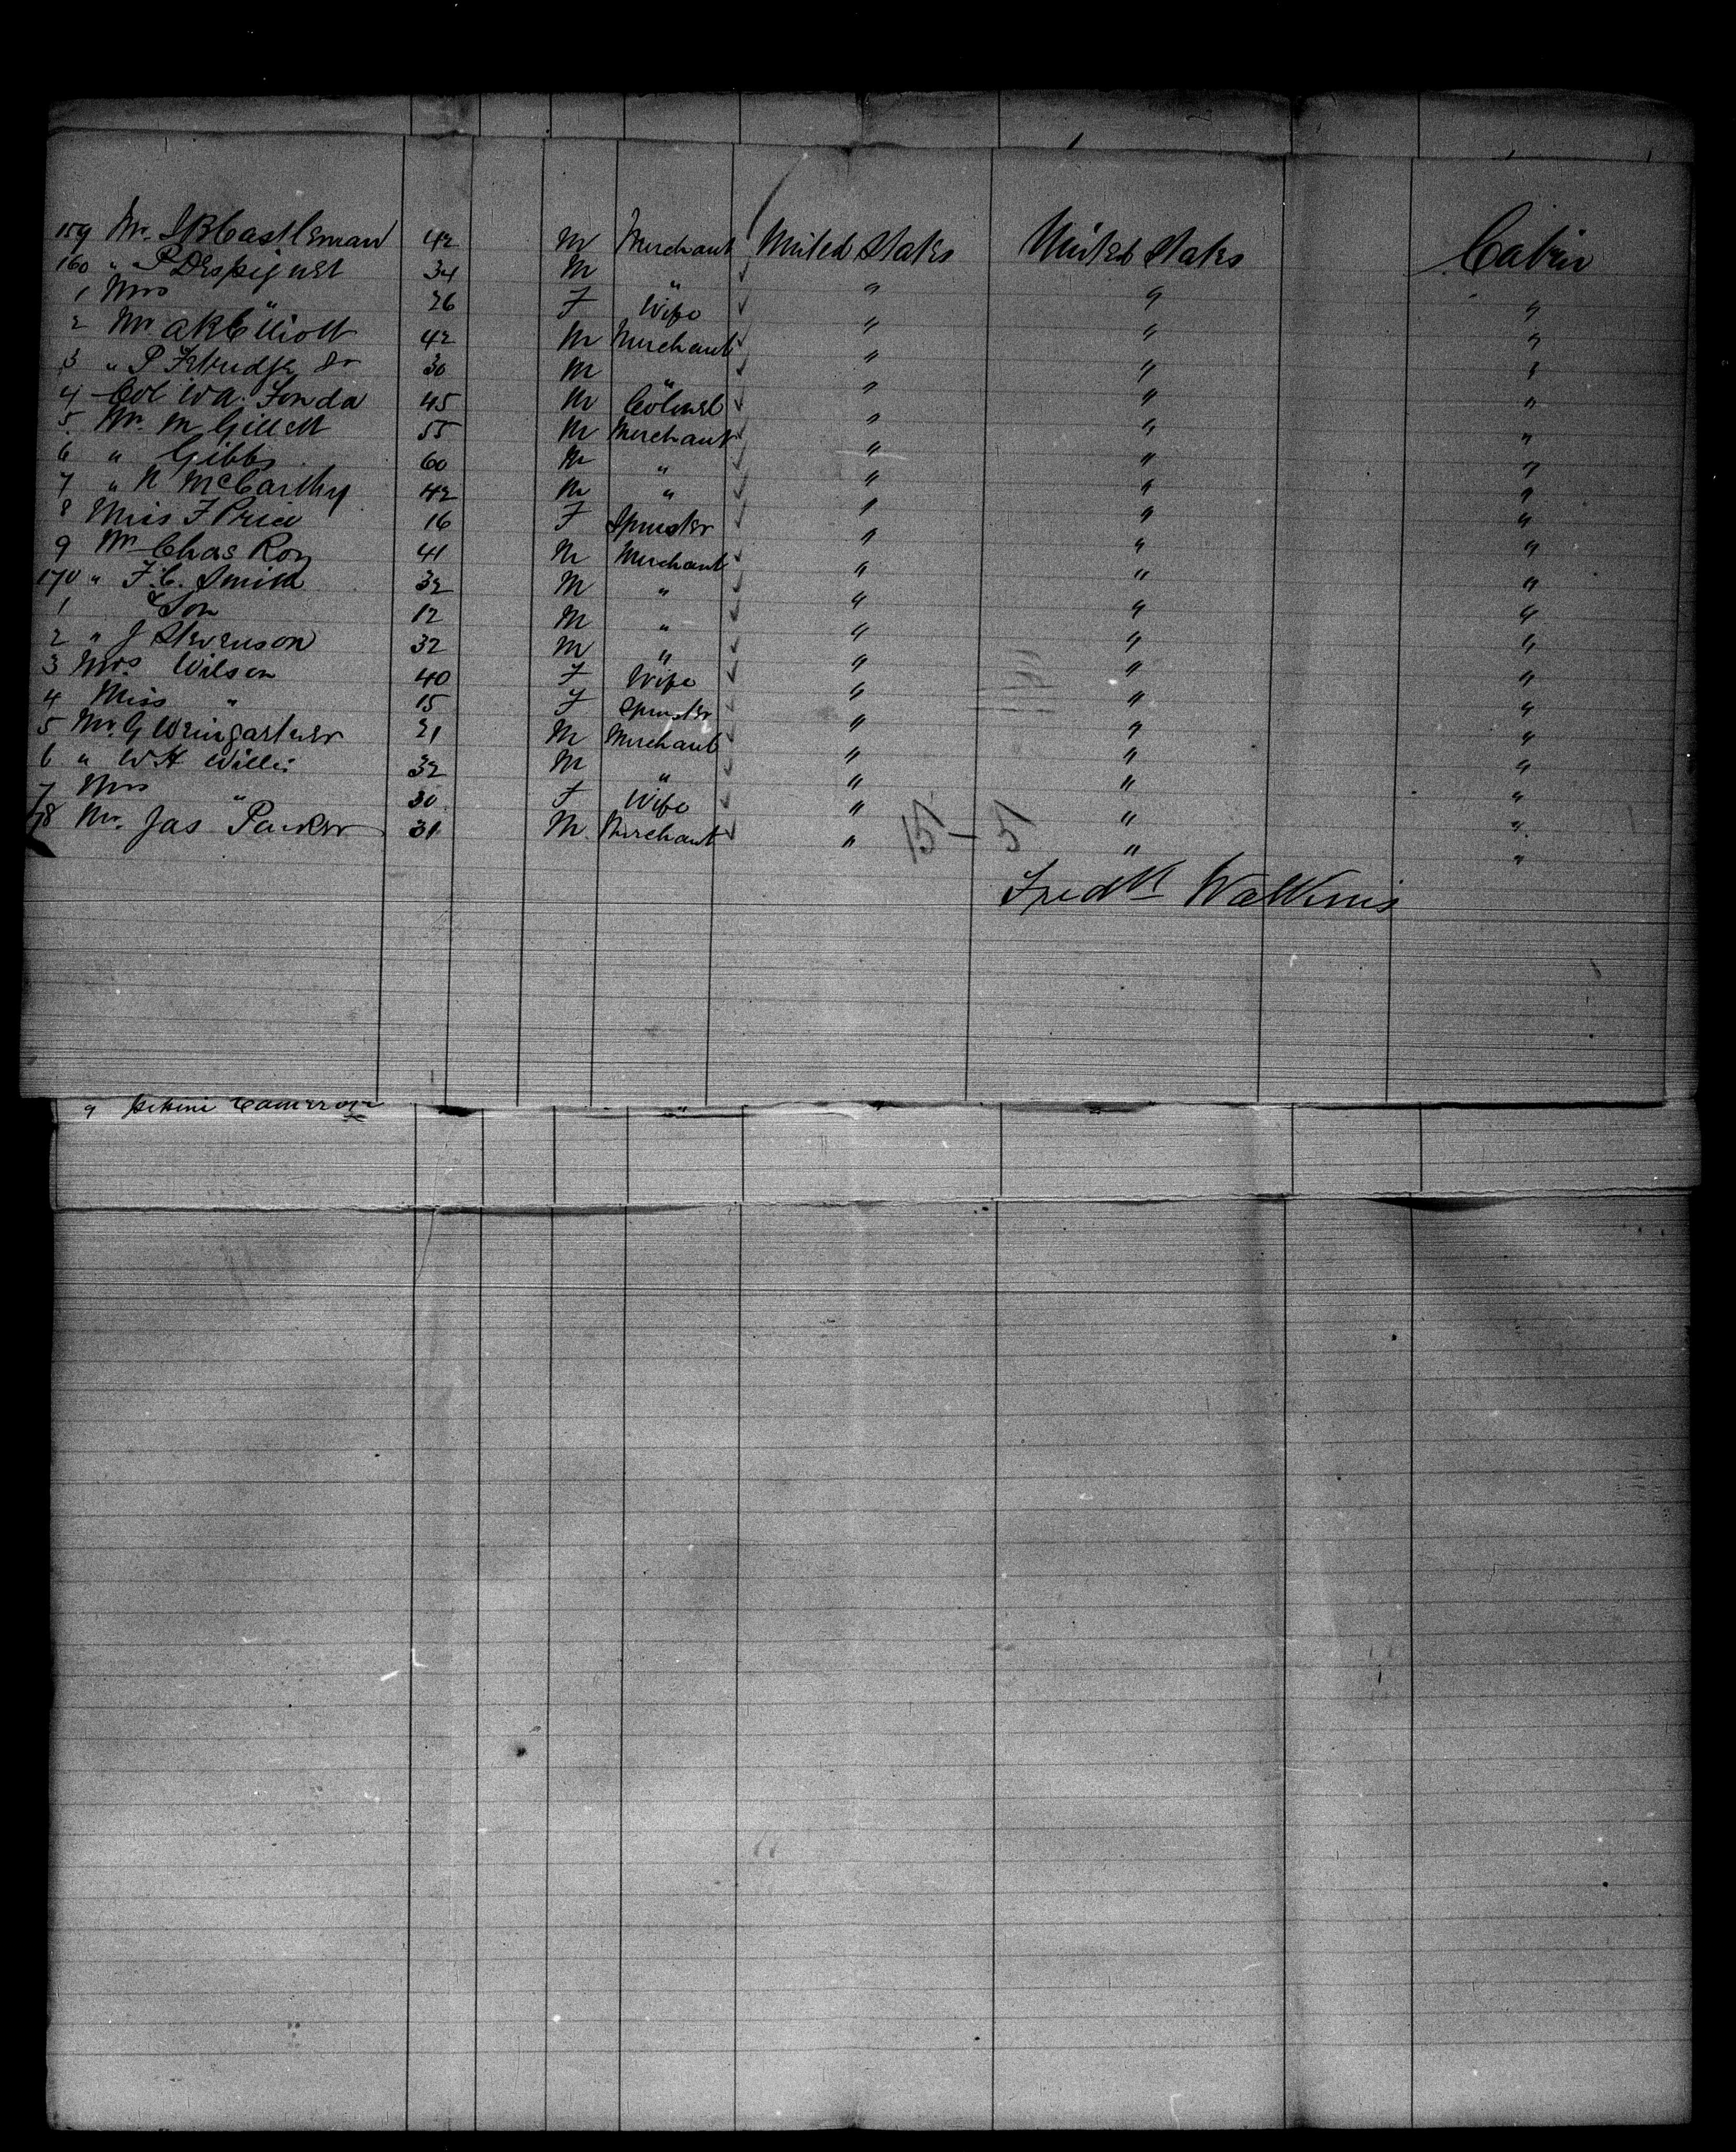 159 Mr. J B Castleman 42 M Merchant United States United States Cabin
160 " P Despignet 34 M " " " "
1 Mrs " 26 F Wife " " "
2 Mr A R Elliott 42 M Merchant " " "
3 " P Jr 30 M " " " "
4 Col W A. Fonda 45 M Colonel " " "
5 Mr. M Gillett 55 M Merchant " " "
6 " Gibbs 60 M " " " "
7 " N McCarthy 42 M " " " "
8 Miss F Price 16 F Spinster " " "
9 Mr Chas Roy 41 M Merchant " " "
170 " F. C. Smith 32 M " " " "
1 & Son 12 M " " " "
2 " J Stevenson 32 M " " " "
3 Mrs. Wilson 40 F Wife " " "
4 Miss " 15 F Spinster " " "
5 Mr. G Weingartner 21 M Merchant " " "
6 " W H Willis 32 M " " " "
7 Mrs " 30 F Wife " " "
178 Mr. Jas Parker 31 M. Merchant " " "
15 – 5
Fredk Watkins
9 Cameron